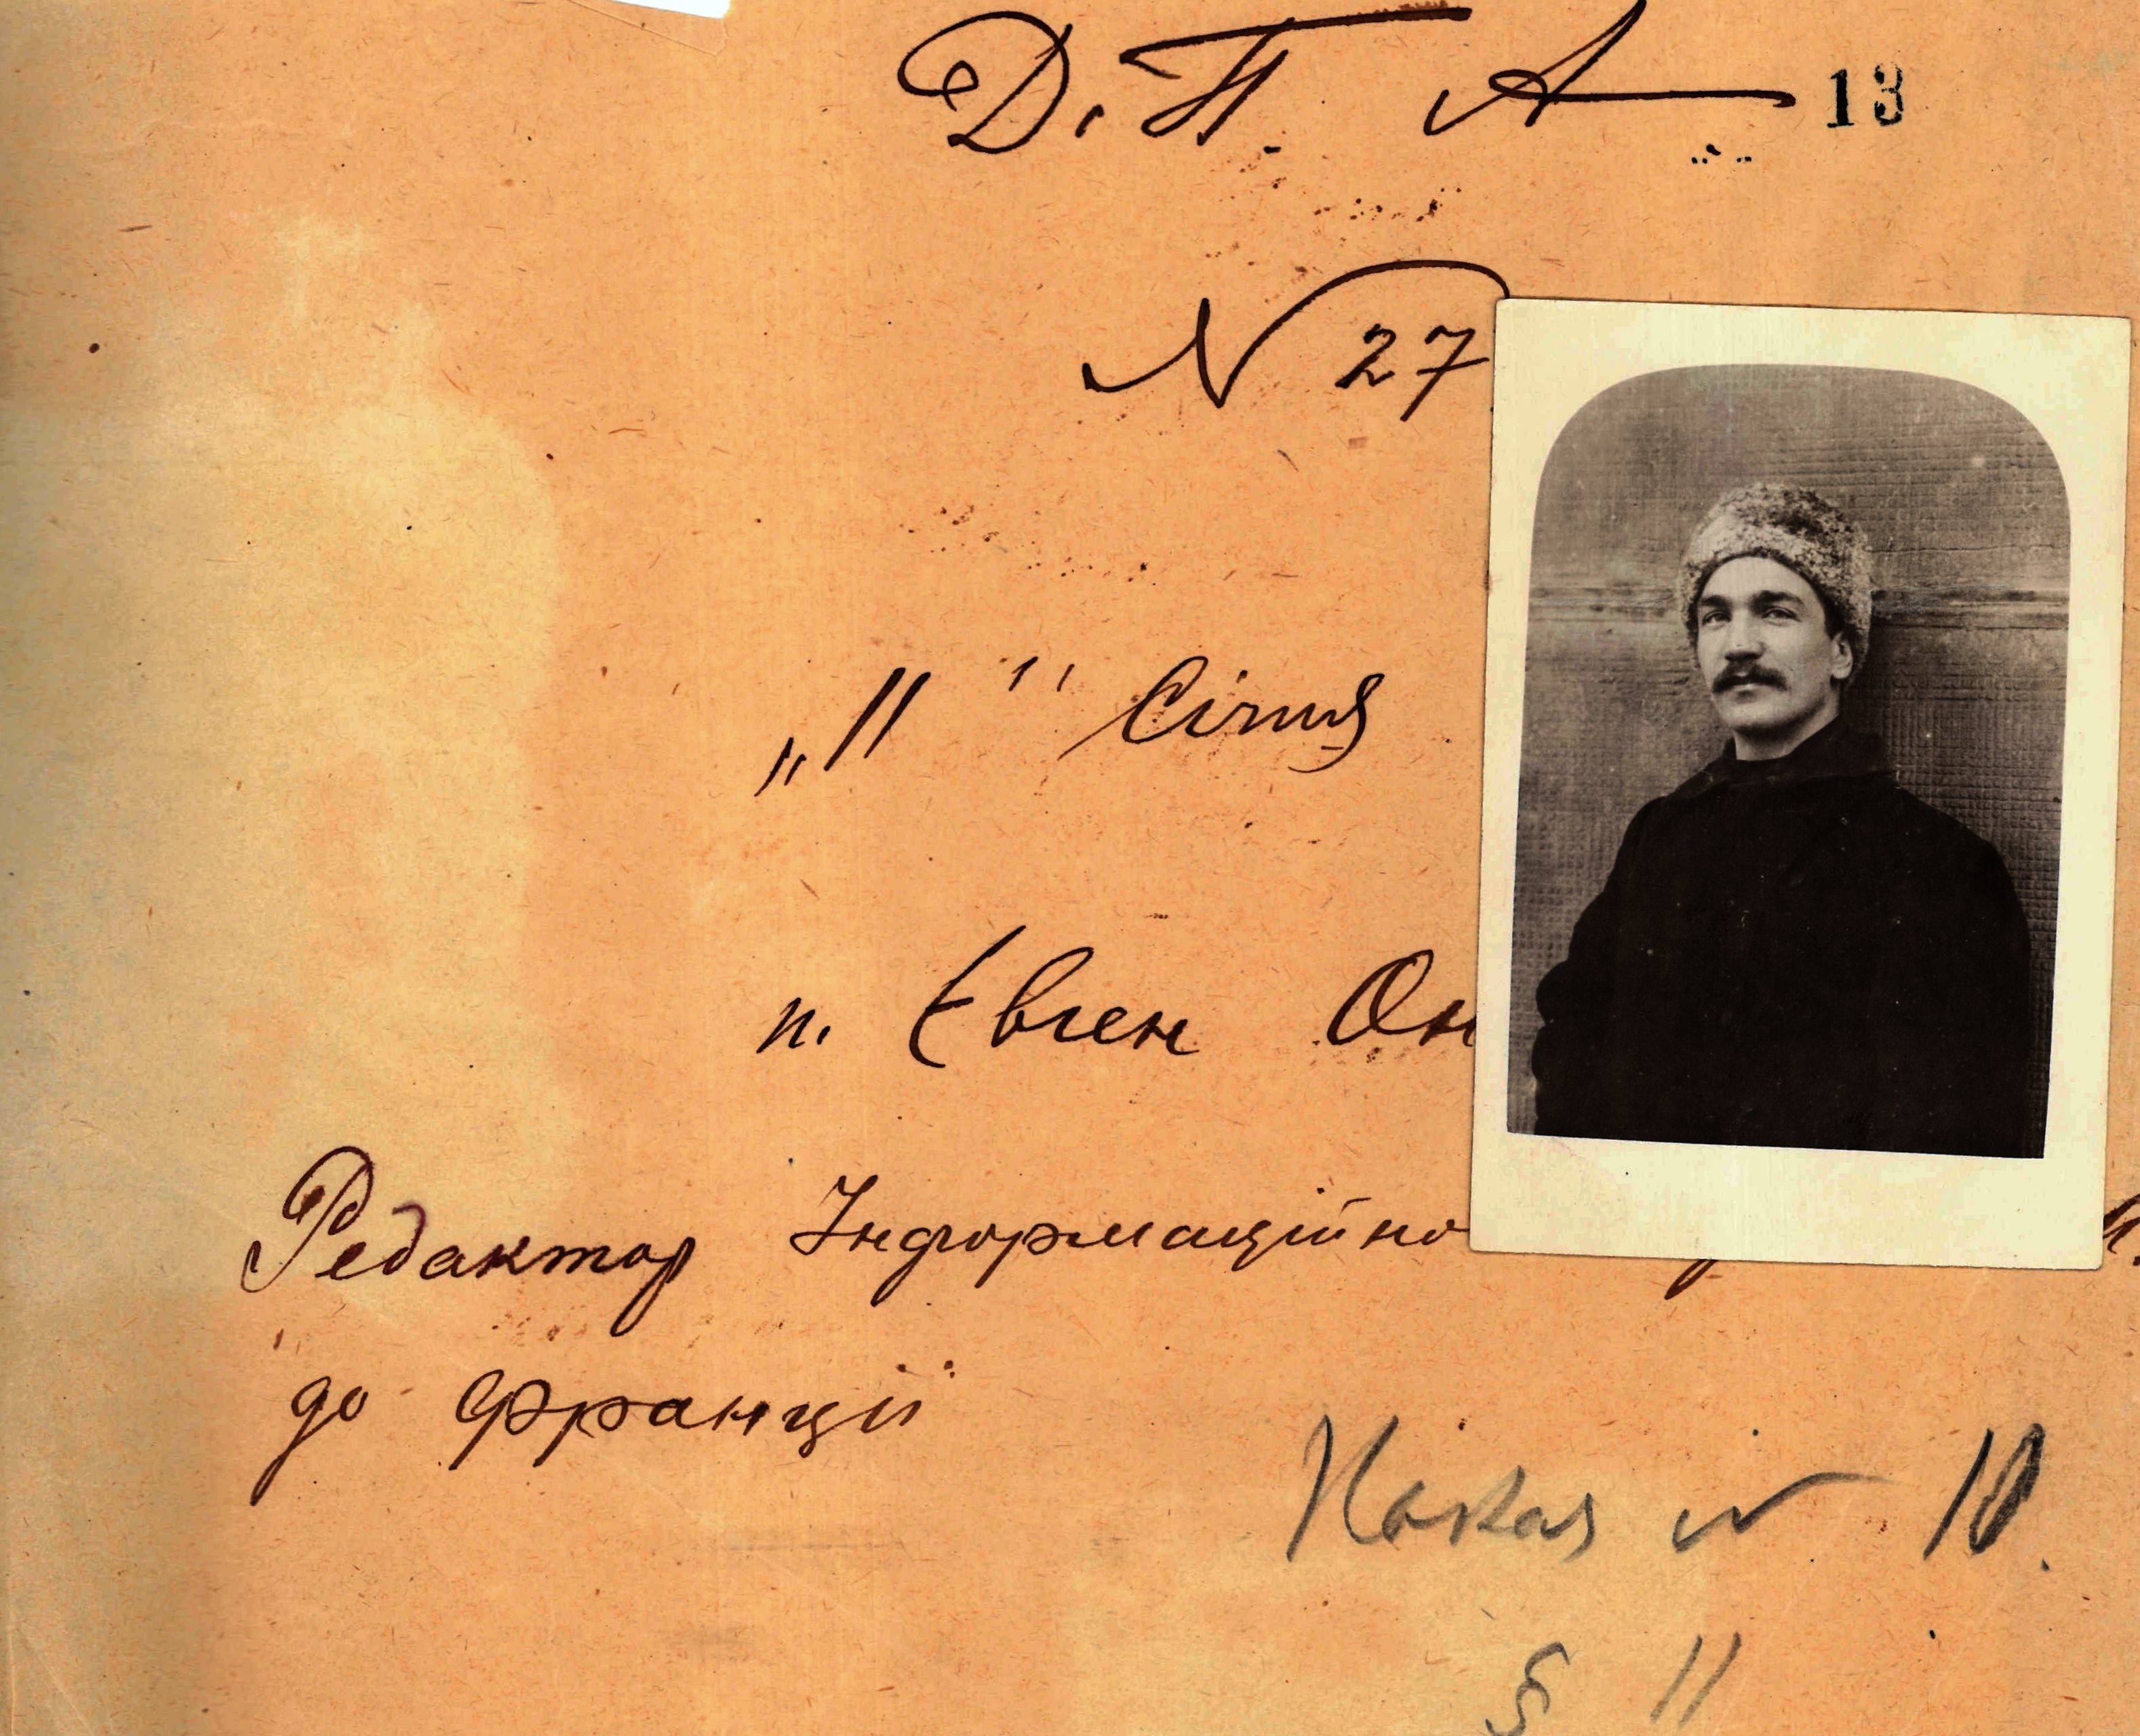 Д. П. А 13
N 27
„11" Січня
п. Євген Он
Редактор Інформаційно
до Франції
Наказ N 10.
§ 11